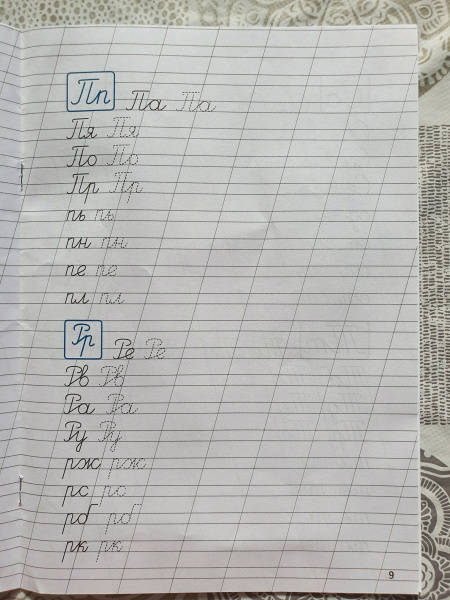 Пп Па Па
Пя Пя
По По
Пр Пр
пь пь
пн пн
пе пе
пл пл
Рр Ре Ре
Рв Рв
Ра Ра
Ру Ру
рж рж
рс рс
рб рб
рк рк
9